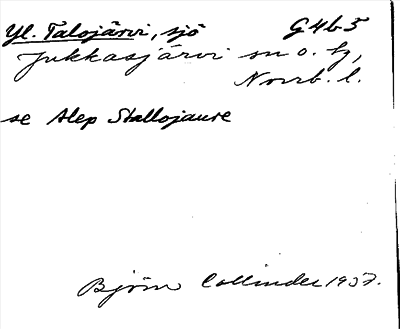 Yl. Talojärvi, sjö G4b5
Jukkasjärvi sn o. hg,
Norrb. l.
se Alep Stallojaure
Björn Collinder 1957.